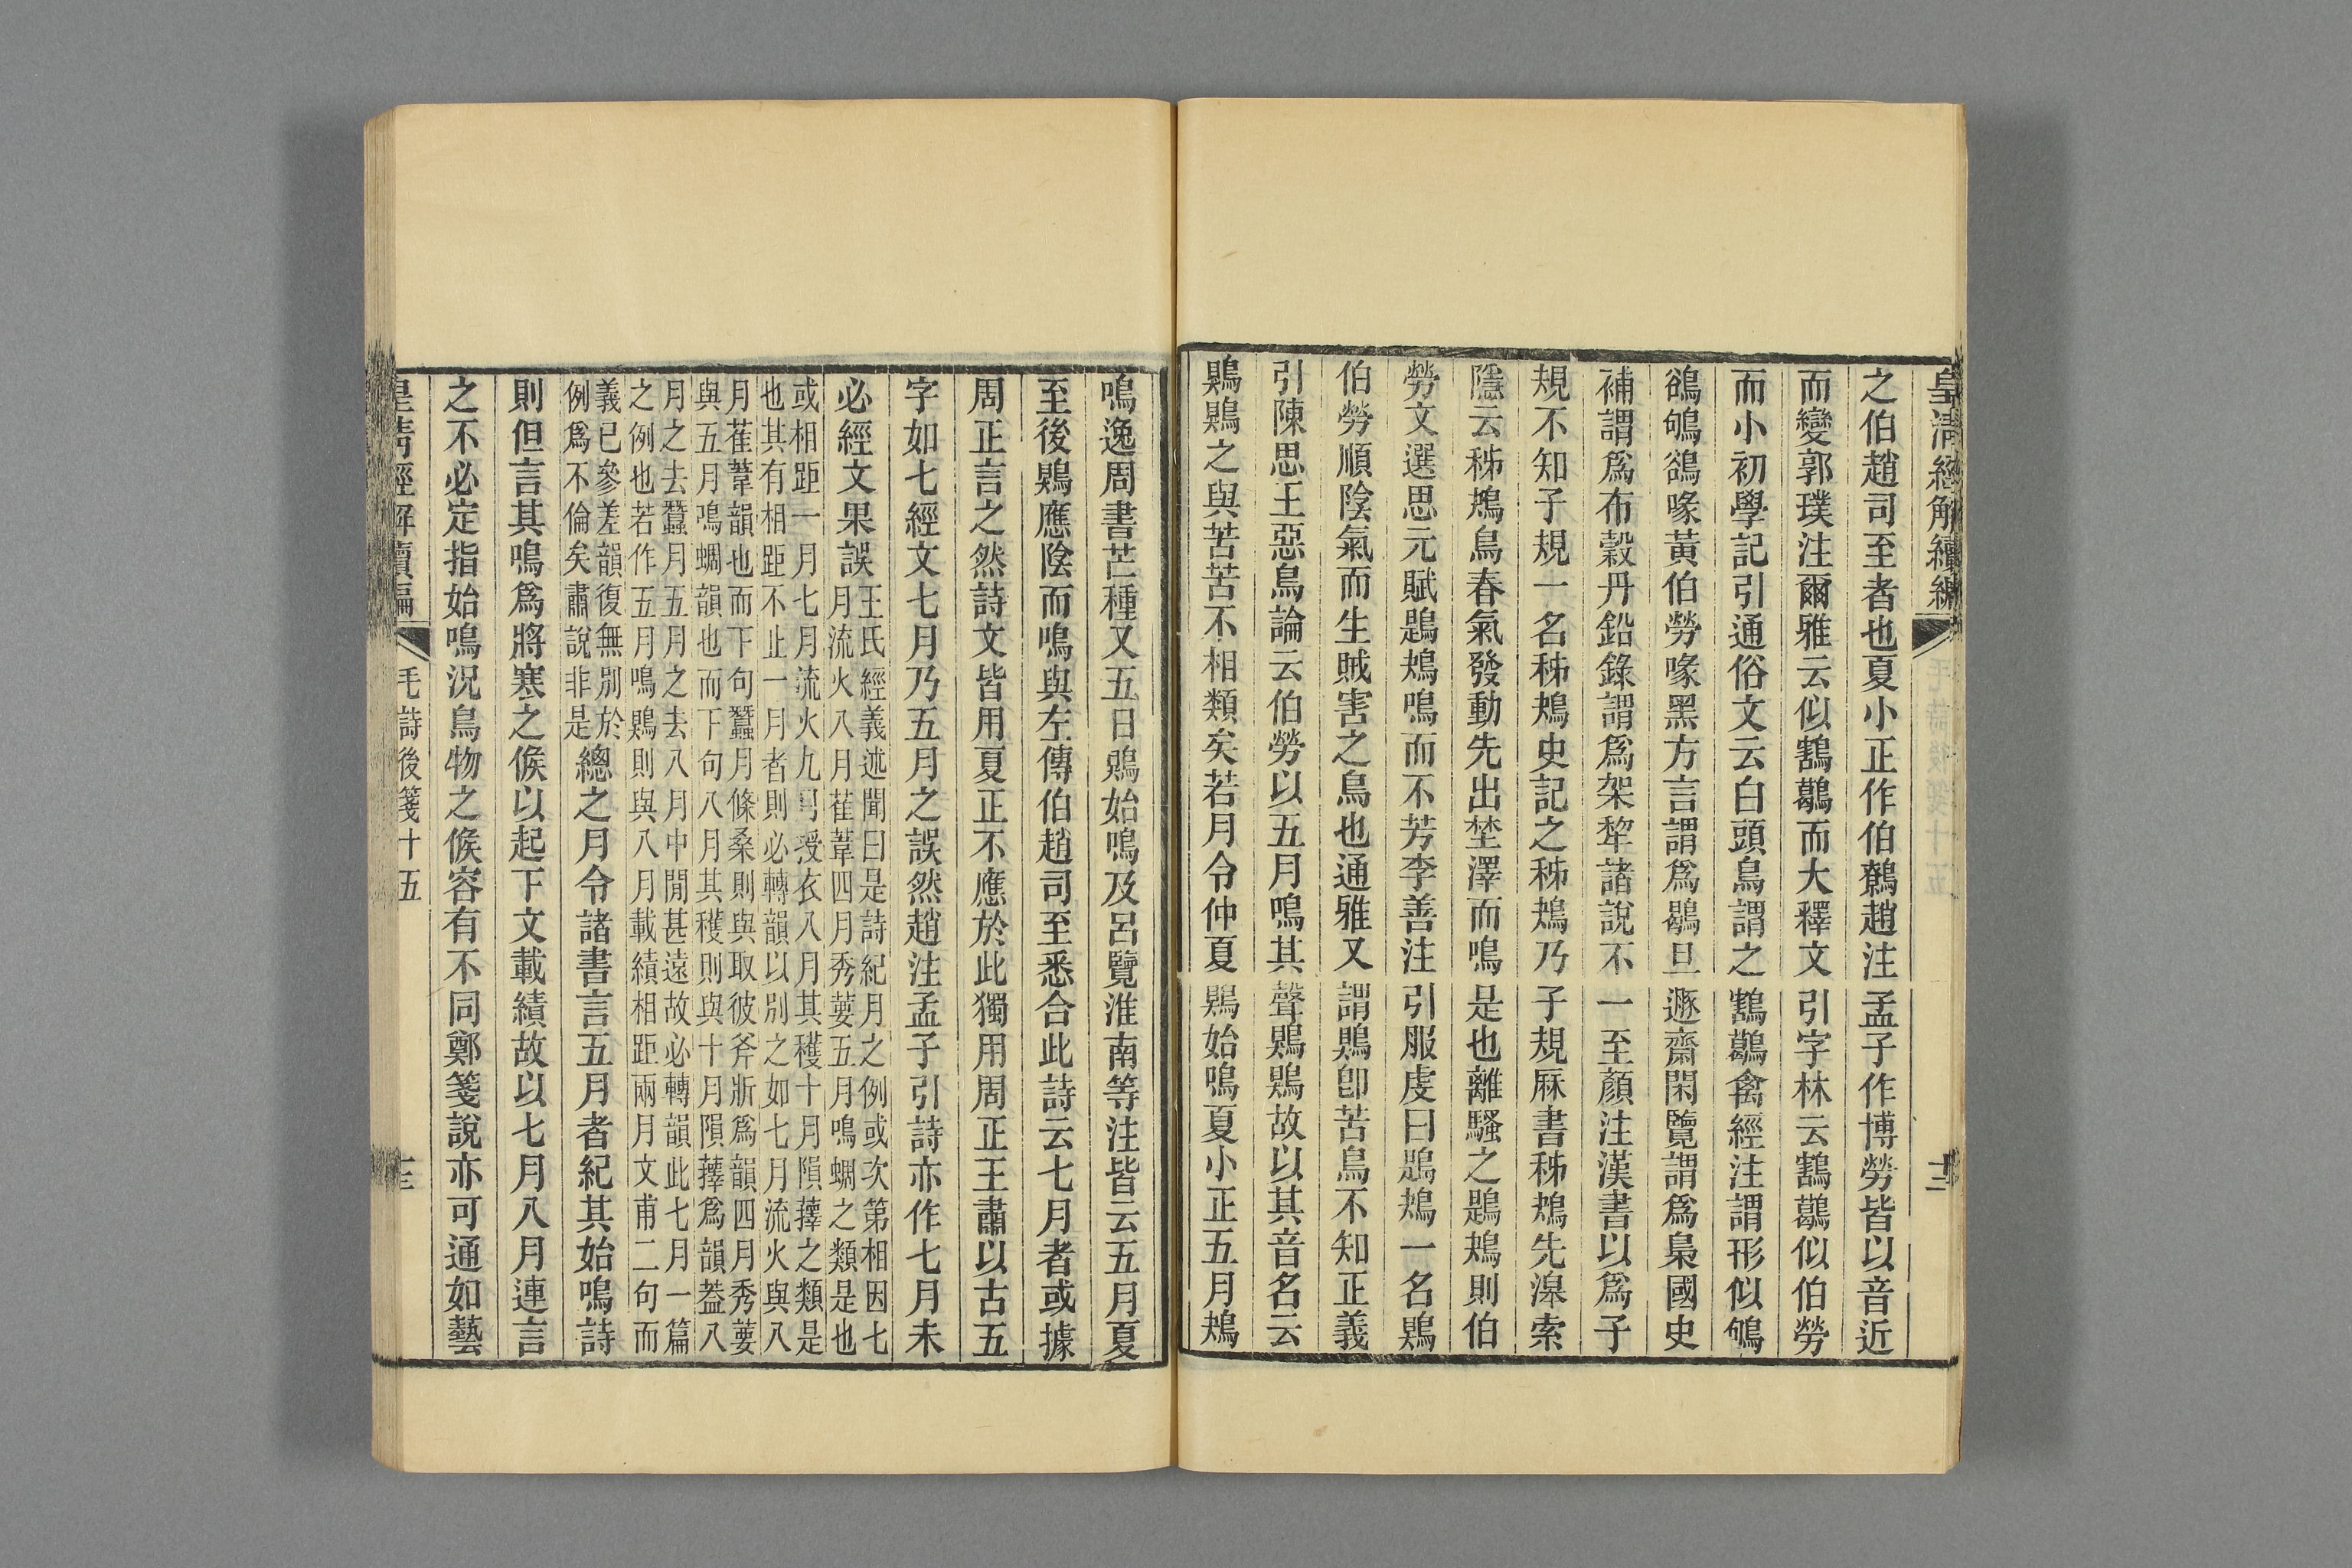 皇清經解續編
十二
之伯趙司至者也夏小正作伯鷯趙注孟子作博勞皆以音近
而變郭璞注爾雅云似鶷鶡而大釋文引字林云鶷鶡似伯勞
而小初學記引通俗文云白頭鳥謂之鶷鶡禽經注謂形似鴝
鵒鴝鵒喙黃伯勞喙黑方言謂爲鶡旦遯齋閑覽謂爲梟國史
補謂爲布穀丹鉛錄謂爲架犂諸說不一至顏注漢書以爲子
規不知子規一名秭鴂史記之秭鴂乃子規厤書秭鴂先滜索
隱云秭鴂鳥春氣發動先出埜澤而鳴是也離騷之鶗鴂則伯
勞文選思元賦鶗鴂鳴而不芳李善注引服虔曰鶗鴂一名鵙
伯勞順陰氣而生賊害之鳥也通雅又謂鵙卽苦鳥不知正義
引陳思王惡鳥論云伯勞以五月鳴其聲鵙鵙故以其音名云
鵙鵙之與苦苦不相類矣若月令仲夏鵙始鳴夏小正五月鴂
鳴逸周書芒種又五日鵙始鳴及呂覽淮南等注皆云五月夏
至後鵙應陰而鳴與左傳伯趙司至悉合此詩云七月者或據
周正言之然詩文皆用夏正不應於此獨用周正王肅以古五
字如七經文七月乃五月之誤然趙注孟子引詩亦作七月未
必經文果誤
王氏經義述聞曰是詩紀月之例或次第相因七
月流火八月萑葦四月秀葽五月鳴蜩之類是也
或相距一月七月流火九月授衣八月其穫十月隕蘀之類是
也其有相距不止一月者則必轉韻以別之如七月流火與八
月萑葦韻也而下句蠶月條桑則與取彼斧斨爲韻四月秀葽
與五月鳴蜩韻也而下句八月其穫則與十月隕蘀爲韻葢八
月之去蠶月五月之去八月中閒甚遠故必轉韻此七月一篇
之例也若作五月鳴鵙則與八月載績相距兩月文甫二句而
義已參差韻復無別於
例爲不倫矣肅說非是
總之月令諸書言五月者紀其始鳴詩
則但言其鳴爲將寒之候以起下文載績故以七月八月連言
之不必定指始鳴況鳥物之候容有不同鄭箋說亦可通如藝
皇清經解續編
毛詩後箋十五
十三